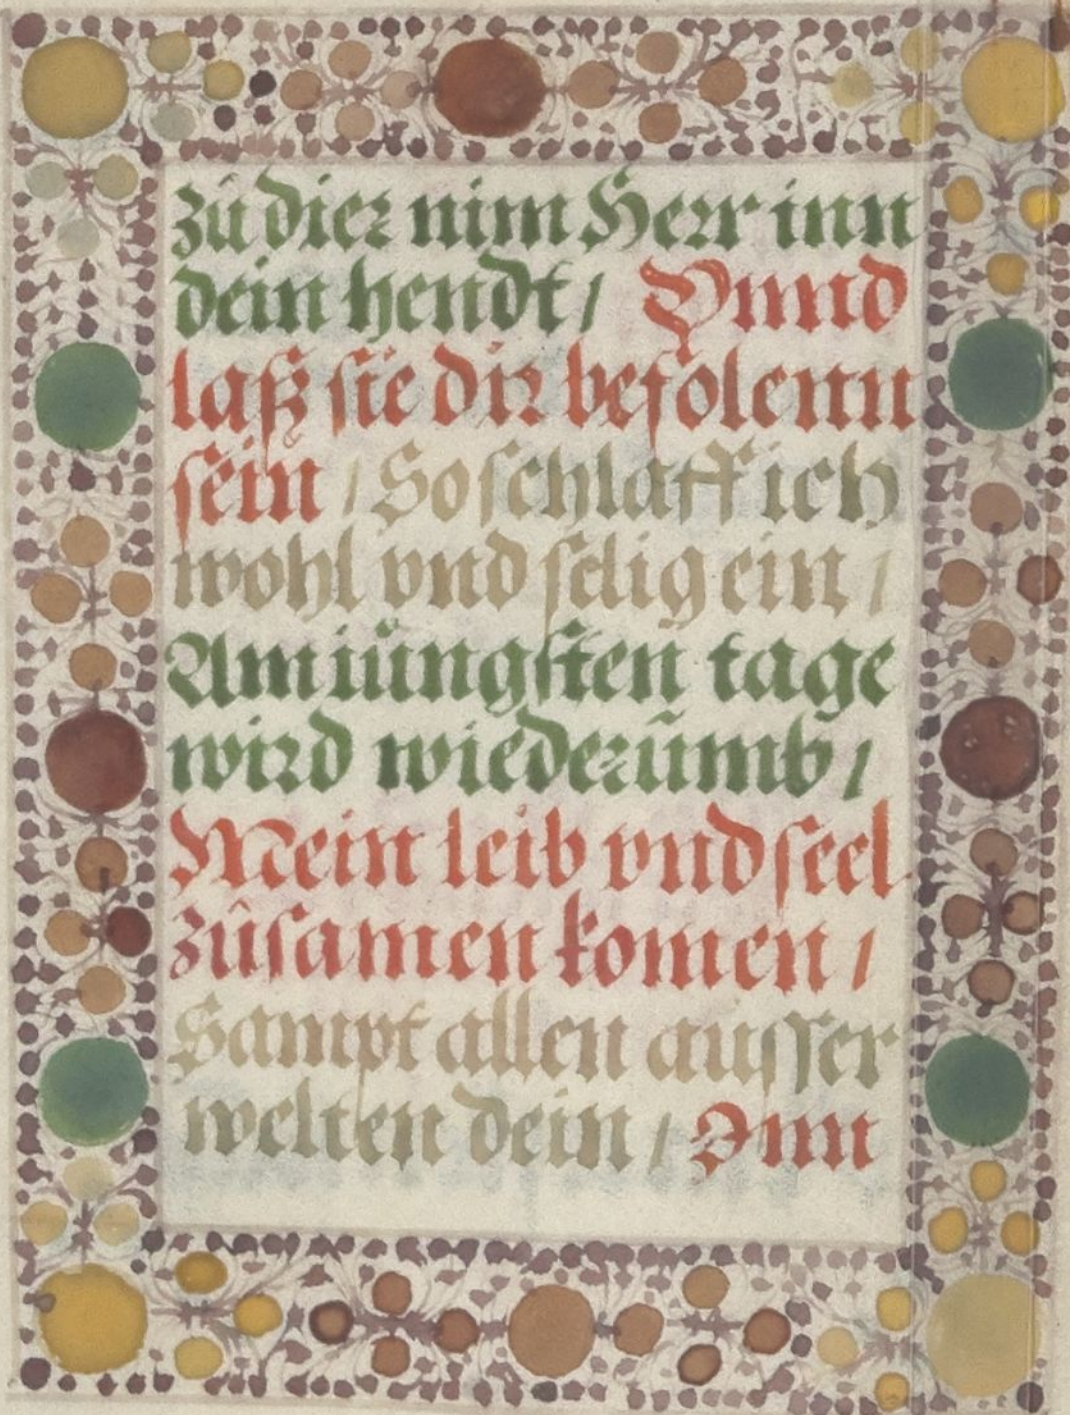 zů dier nim Herr inn
dein hendt /  Vnnd
laß sie dir befolenn
sein / So schlaff ich
wohl vnd selig ein /
Am iüngsten tage
wird wiederůmb /
Mein leib vnd seel
zůsamen komen /
Sampt allen ausser
welten dein / Inn